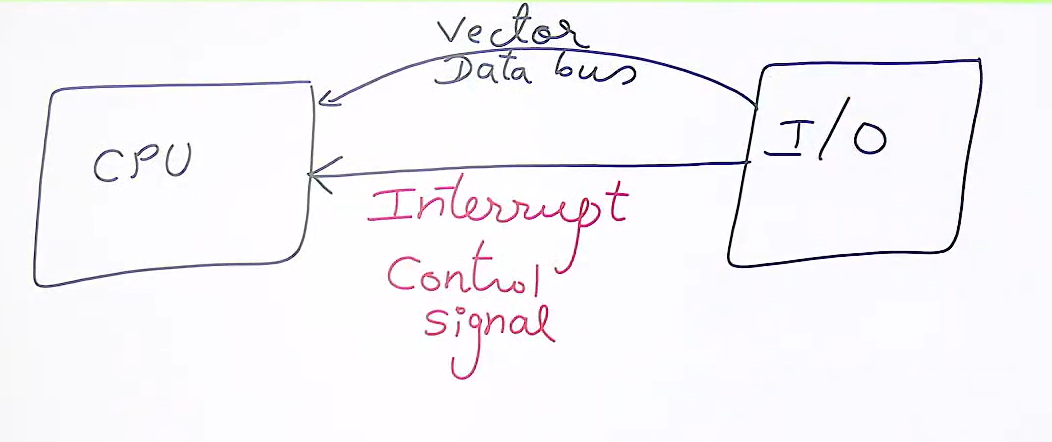 Vector
Data bus
CPU
I/O
Interrupt
Control
signal